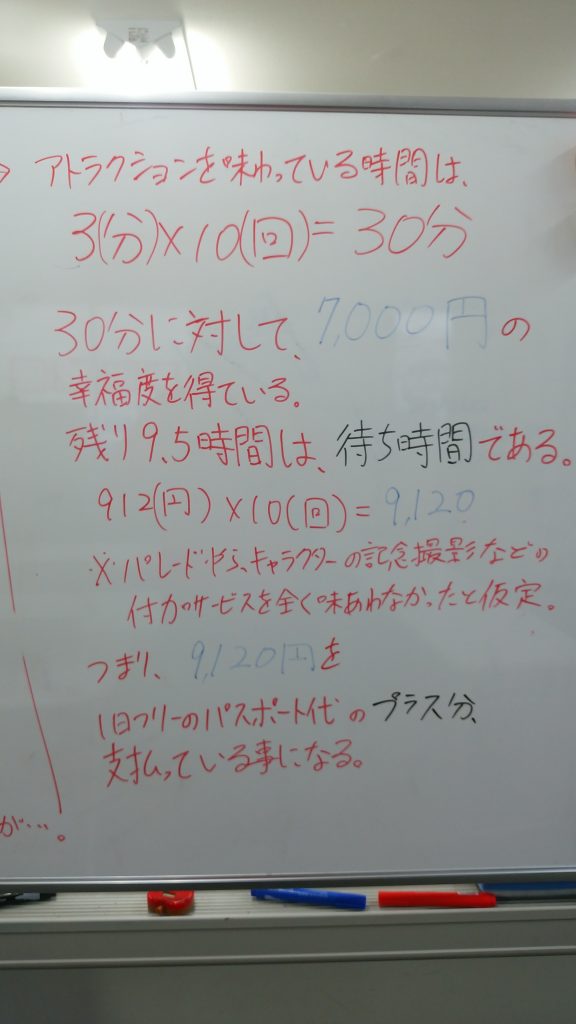 → アトラクションを味わっている時間は、
3(分)×10(回)=30分
30分に対して、7,000円の
幸福度を得ている。
残り9.5時間は、待ち時間である。
912(円)×10(回)=9,120
※パレードやら、キャラクターの記念撮影などの
付加サービスを全く味あわなかったと仮定。
つまり、9,120円を
1日フリーのパスポート代のプラス分、
支払っている事になる。
が…。